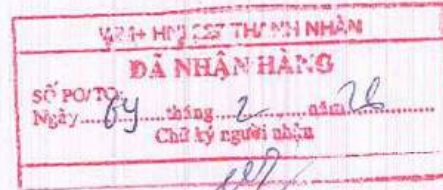 WM+ HNI 227 THANH NHÀN
ĐÃ NHẬN HÀNG
SỐ PO/TO:
Ngày......04......tháng......2......năm 26......
Chữ ký người nhận